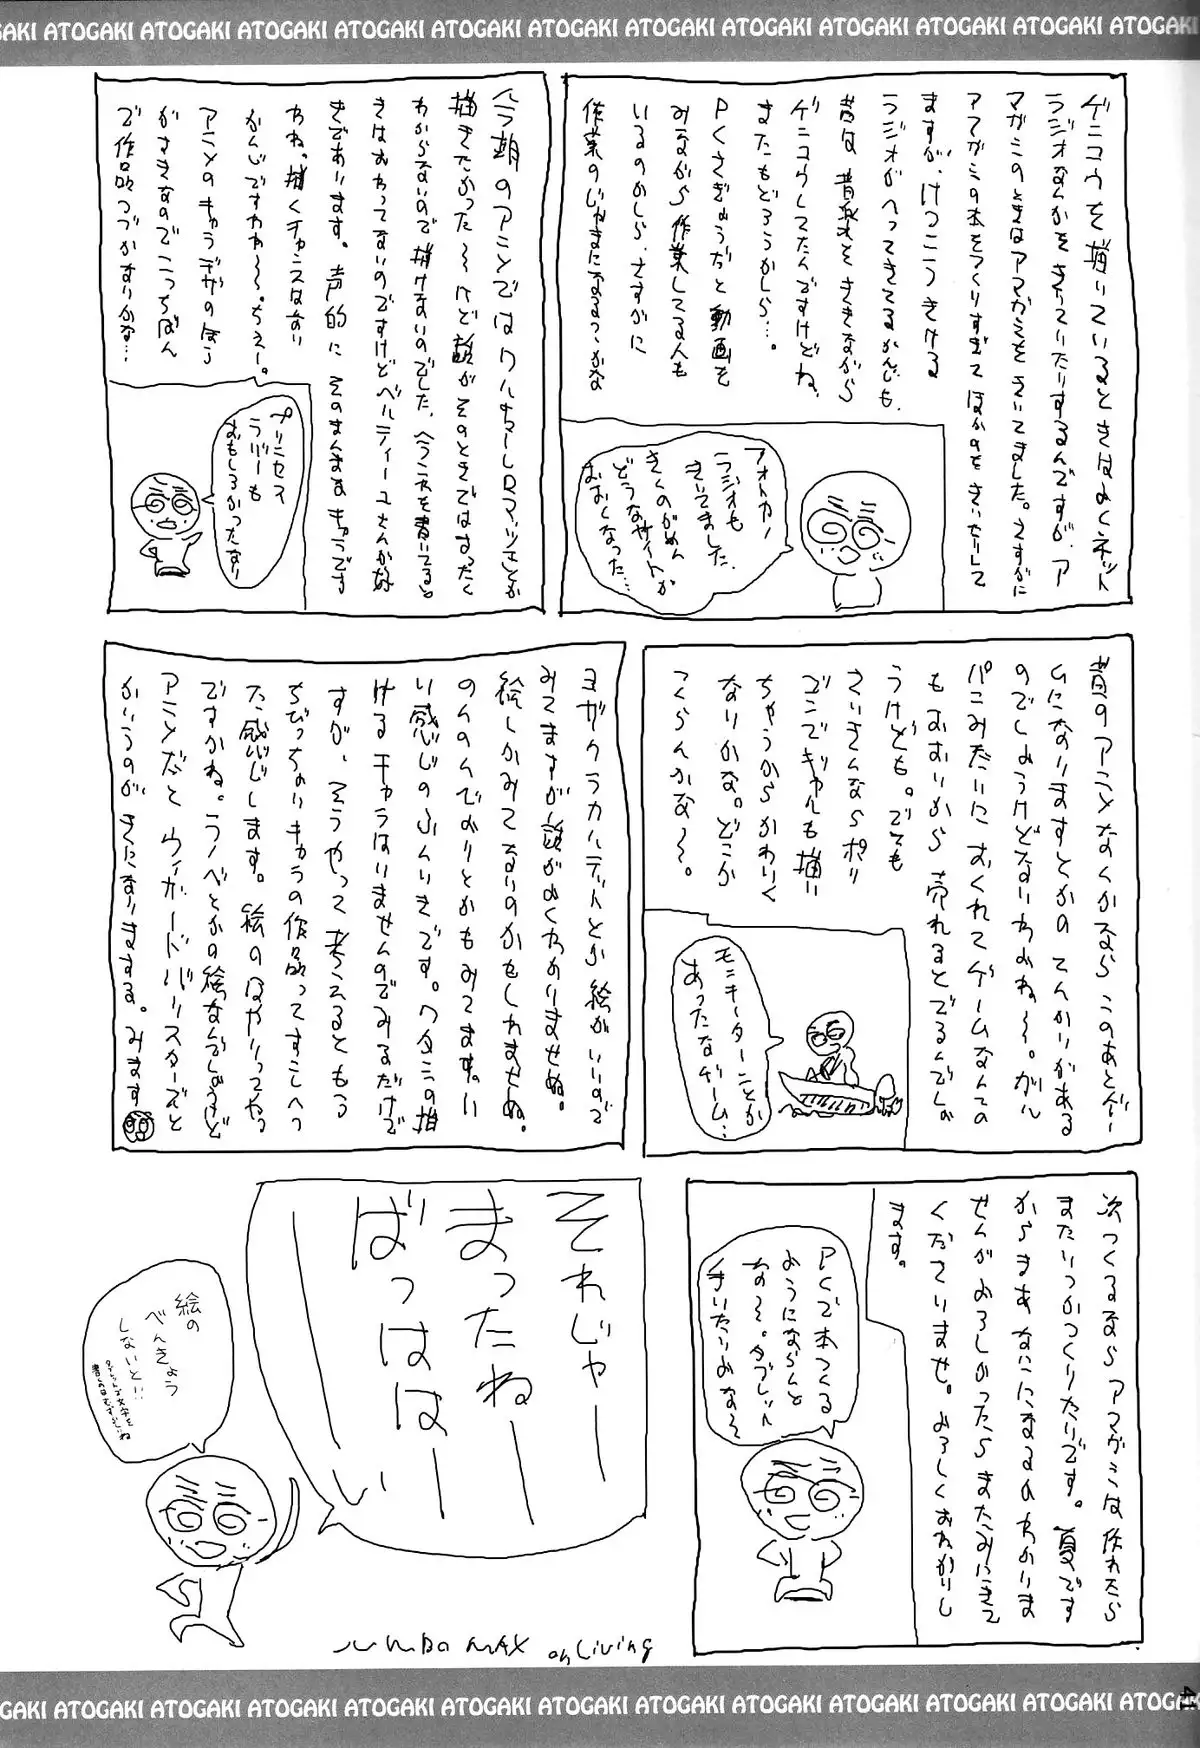 ATOGAKI ATOGAKI ATOGAKI ATOGAKI ATOGAKI ATOGAKI ATOGAKI ATOGAKI ATOGAKI ATOGAKI ATOGAKI ATOGAKI
ゲンコウを描いているときはよくネット
ラジオなんかをきいていたりするんですが、ア
マガミのときはアマガミをきいてました。さすがに
アマガミの本をつくりすぎてほかのをきいたりして
ますが、けっこうきける
ラジオがへってきてるかんじも、
昔は音楽をききながら
ゲンコウしてたんですけどね、
またもどろうかしら…。
PCさぎょうだと動画を
みながら作業してる人も
いるのかしら、さすがに
作業のじゃまになるっつかな
アオトカノ
ラジオも
きいてました、
きくのがめん
どうなサイトが
おおくなった…
描きたかった〜けど顔がそのときではまったく
わからないので描けないのでした、
きはおわってないのですけどベルティーユさんが好
きであります。声的にそのまんまなキャラです
わね。描くチャンスはない
かんじですわわ〜〜。ちぇー。
アニメのキャラデザのほう
がすきなのでこっちばん
で作品つづかないかな…
プリンセス
ラバーも
おもしろかったなり
昔のアニメなんかなら このあとゲー
ムになりますとかの てんかいがある
のでしょうけどないわよね〜。ガル
パンみたいにおくれてゲームなんての
もおおいから 売れるとでるんでしょ
うけども。でも
さいきんならポリ
ゴンでギャルも描い
ちゃうからかわいく
ないかな。どこか
つくらんかな〜。
モンキーターンとか
あったなゲーム…
ヨザクラカルテットとか 絵がいいので
みてますが 話がよくわかりませぬ。
絵しかみてないのかもしれませぬ。
のんのんびよりとかもみてます。い
い感じのふんいきです。ワタシの描
ける キャラはいませんのでみるだけで
すが、そうやって考えるともう
ちびっちゃいキャラの作品ってすこしへっ
た感じします。絵のはやりってやつ
ですかね。ラノベとかの絵なんでしょうけど
アニメだと ウィザードバリスターズんと
かいうのが きになりまする。みます
次つくるなら アマガミは 作れたら
またいつかつくりたいです。夏です
からまあ なにになるのかわかりま
せんがよろしかったらまたみにきて
くださいませ。よろしくおねがいし
ます。
PCで本つくる
ようにならんと
な〜。タブレット
それじゃーー
まったねーー
ばっははーー
ーーーい
絵の
べんきょう
しないと!!
JUMBO MAX on Living
41
ATOGAKI ATOGAKI ATOGAKI ATOGAKI ATOGAKI ATOGAKI ATOGAKI ATOGAKI ATOGAKI ATOGAKI ATOGAKI ATOGAKI